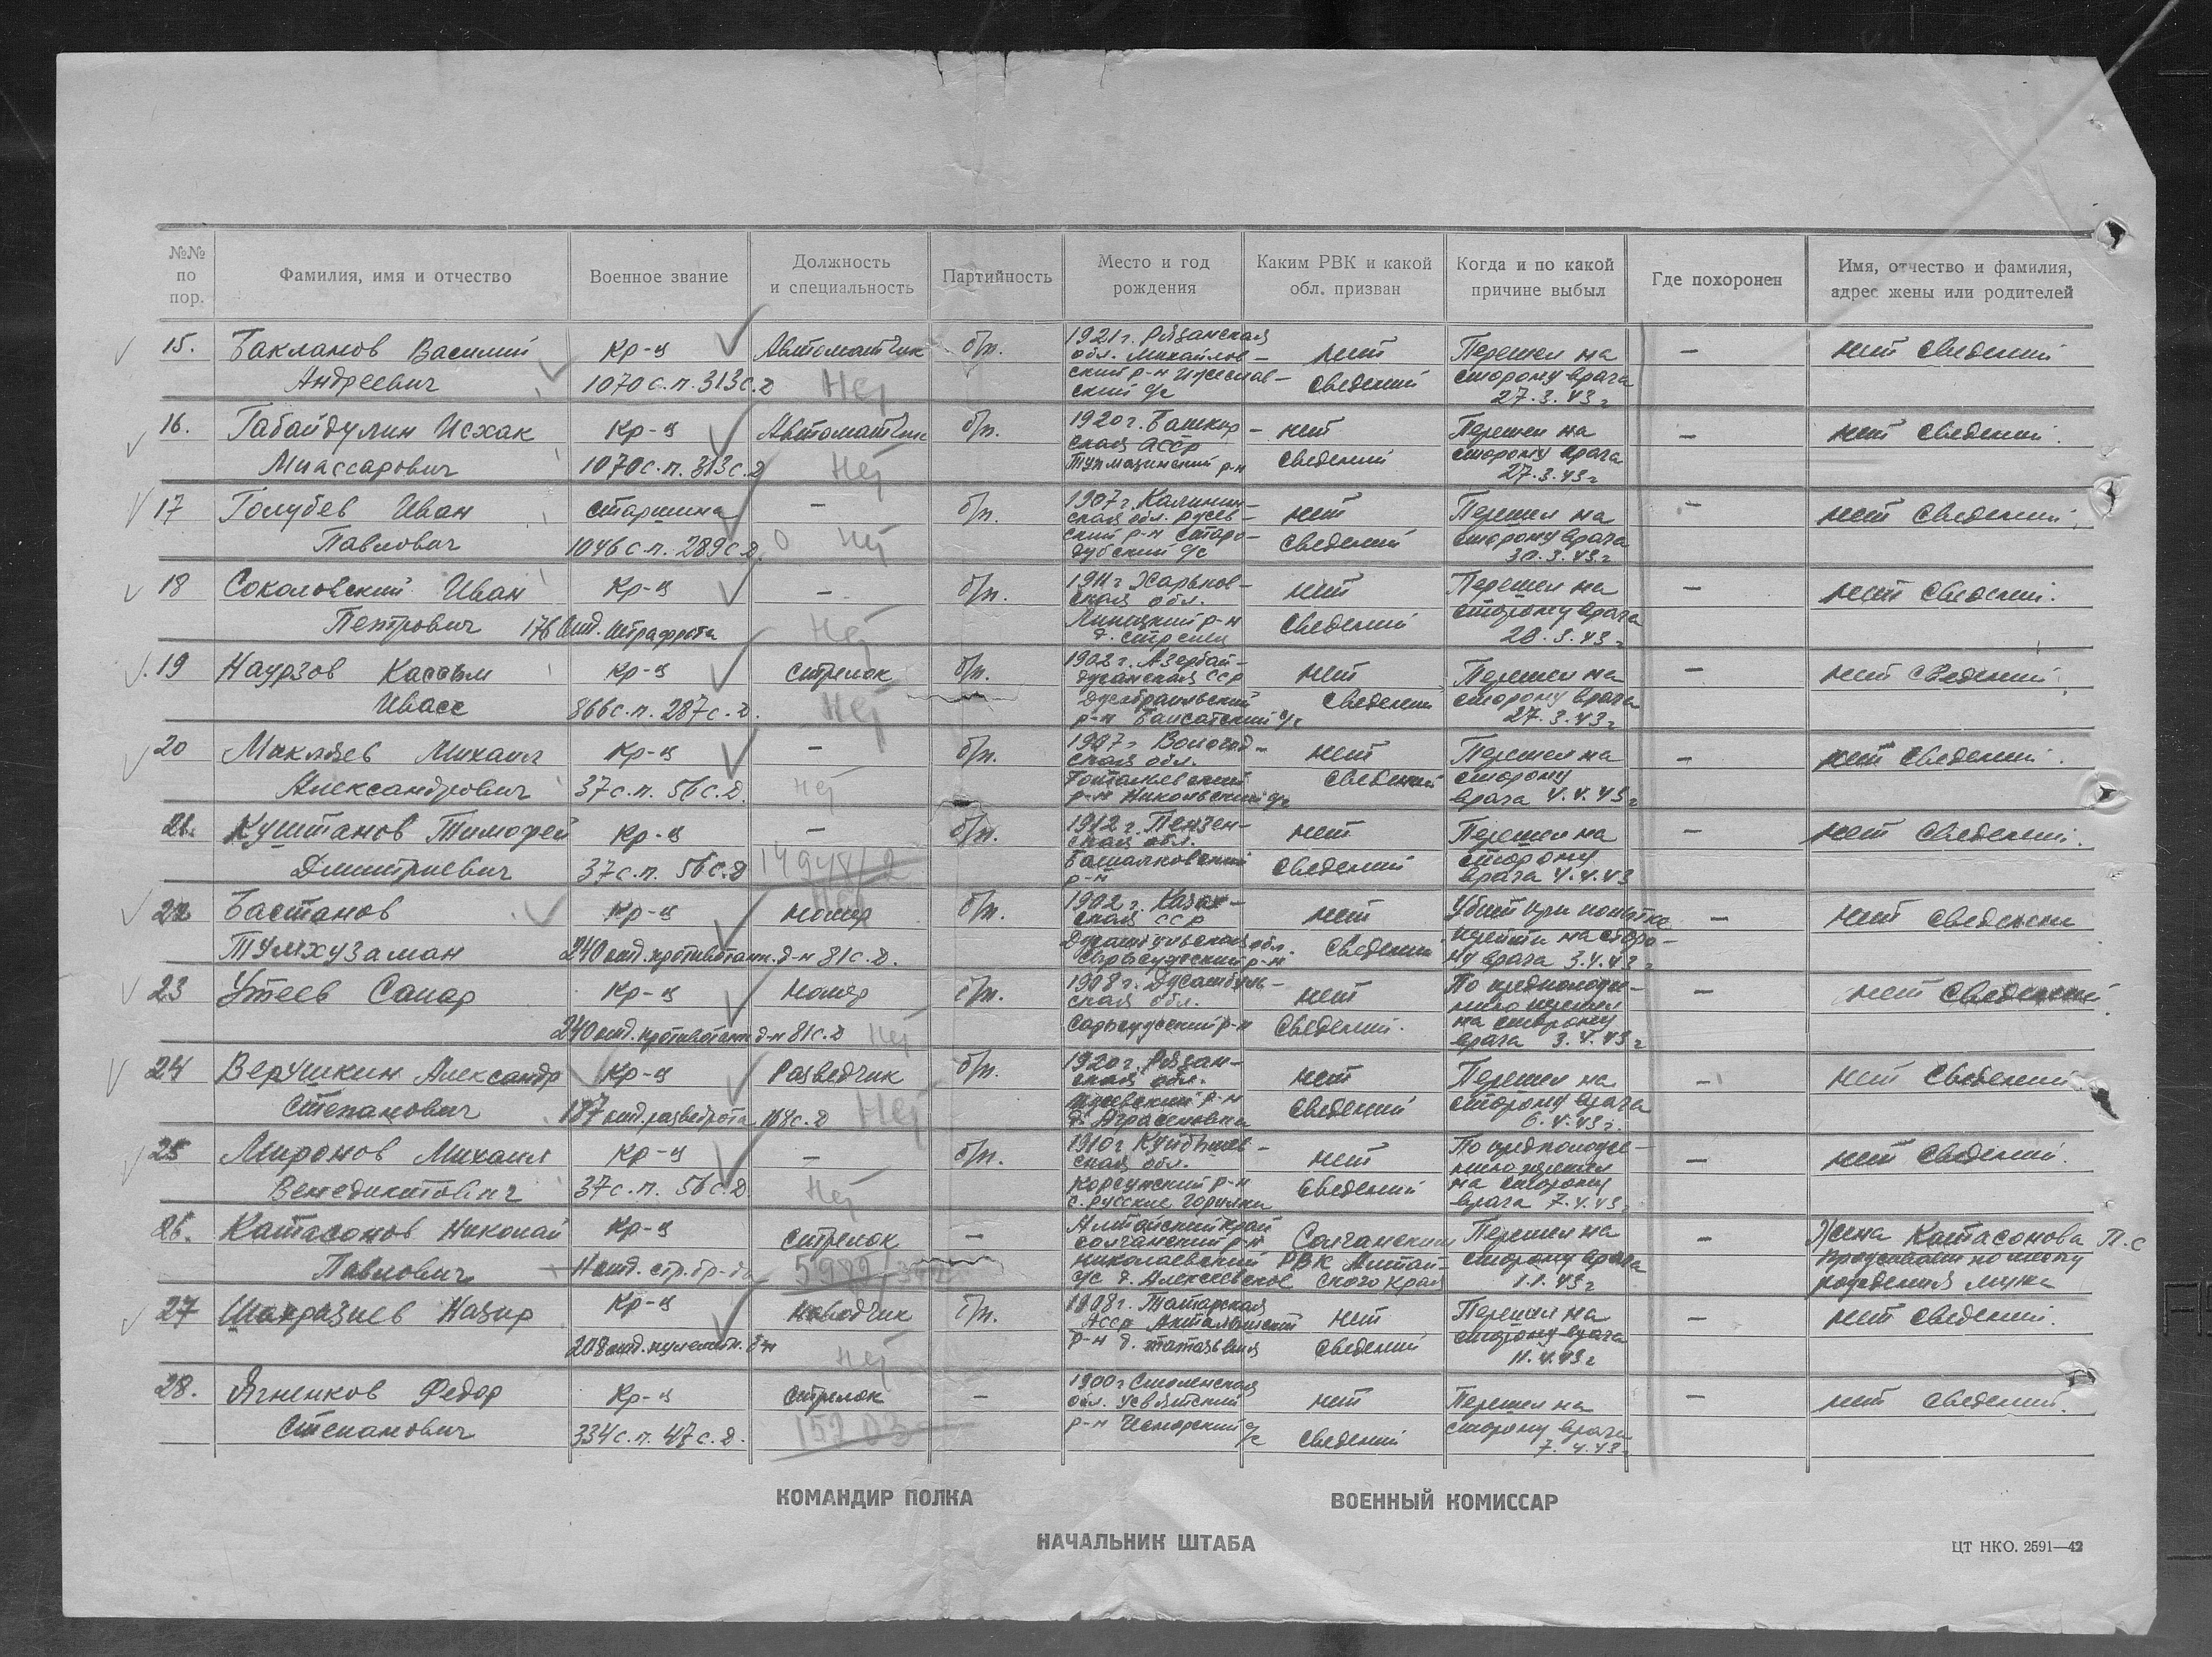 №№ по пор. Фамилия, имя и отчество Военное звание Должность и специальность Партийность Место и год рождения Каким РВК и какой обл. призван Когда и по какой причине выбыл Где похоронен Имя, отчество и фамилия, адрес жены или родителей
15. Бакланов Василий Андреевич
Кр-ц 1070 с.п. 313 с.д
Автоматчик
Нет
б/п.
1921 г. Рязанская
обл. Михайлов-
ский р-н Ижеслав-
ский с/с
нет сведений
Перешел на
сторону врага
27.3.43 г
—
нет сведений
16. Габайдулин Исхак Миассарович
Кр-ц 1070 с.п. 313 с.д
Автоматчик
Нет
б/п.
1920 г. Башкир-
ская АССР
р-н
нет сведений
Перешел на
сторону врага
27.3.43 г
—
нет сведений.
17 Голубев Иван Павлович
старшина 1046 с.п. 289 с.д.
—
Нет
б/п.
1907 г. Калинин-
ская обл.
ский р-н Старо-
дубский с/с
нет сведений
Перешел на
сторону врага
30.3.43 г
—
нет сведений.
18 Соколовский Иван Петрович
Кр-ц 176 отд. штрафрота
—
Нет
б/п.
1911 г Харьков-
ская обл.
р-н
д.
нет сведений
Перешел на
сторону врага
28.3.43 г
—
нет сведений.
19 Наурзов Кассым Иваес
Кр-ц 866 с.п. 287 с.д.
стрелок
Нет
б/п.
1902 г. Азербай-
джанская ССР
Джебраильский
р-н с/с
нет сведений
Перешел на
сторону врага
27.3.43 г
—
нет сведений.
20 Микляев Михаил Александрович
Кр-ц 37 с.п. 56 с.д.
—
Нет
б/п.
1907 г Вологод-
ская обл.
р-н Никольский с/с
нет сведений
Перешел на
сторону
врага 4.4.43 г
—
нет сведений.
21. Куштанов Тимофей Дмитриевич
Кр-ц 37 с.п. 56 с.д
—
14948/2
б/п.
1912 г. Пензен-
ская обл.
Башмаковский
р-н
нет сведений
Перешел на
сторону
врага 4.4.43
—
нет сведений.
22 Бастанов Тумхузаман
Кр-ц 240 отд. противотанк. д-н 81 с.д.
номер
Нет
б/п.
1902 г. Казах-
ская ССР
Джамбульская обл.
Сарысуйский р-н
нет сведений
Убит при попытке
перейти на сторо-
ну врага 3.4.43 г
—
нет сведений
23 Утеев Сапар
Кр-ц 240 отд. противотанк д-н 81 с.д
номер
Нет
б/п.
1908 г. Джамбуль-
ская обл.
Сарысуйский р-н
нет сведений.
По предположе-
нию перешел
на сторону
врага 3.4.43 г
—
нет сведений
24 Верушкин Александр Степанович
Кр-ц 187 отд. разведрота 168 с.д
Разведчик
Нет
б/п.
1920 г. Рязан-
ская обл.
р-н
д. Аграфеновка
нет сведений
Перешел на
сторону врага
6.4.43 г.
—
нет сведений
25 Миронов Михаил Венедиктович
Кр-ц 37 с.п. 56 с.д
—
Нет
б/п.
1910 г Куйбышев-
ская обл.
Корсунский р-н
с. Русские Горушки
нет сведений
По предположе-
нию перешел
на сторону
врага 7.4.43
—
нет сведений.
26. Катасонов Николай Павлович
Кр-ц отд. стр. бр-да
стрелок
5982
—
Алтайский край
Солтанский р-н
Николаевский
с/с д. Алексеевское
Солтанским
РВК Алтай-
ского края
Перешел на
сторону врага
1.1.43 г
—
Жена Катасонова П.с
проживает по месту
рождения мужа
27 Шакразиев Назир
Кр-ц 208 отд. пулеметн. б-н
наводчик
Нет
б/п.
1908 г. Татарская
АССР Актанышский
р-н д.
нет сведений
Перешел на
сторону врага
11.4.43 г
—
нет сведений.
28. Ягненков Федор Степанович
Кр-ц 334 с.п. 47 с.д.
стрелок
15203
—
1900 г Смоленская
обл. Усвятский
р-н с/с
нет сведений
Перешел на
сторону врага
7.4.43 г
—
нет сведений.
КОМАНДИР ПОЛКА
ВОЕННЫЙ КОМИССАР
НАЧАЛЬНИК ШТАБА
ЦТ НКО. 2591—42